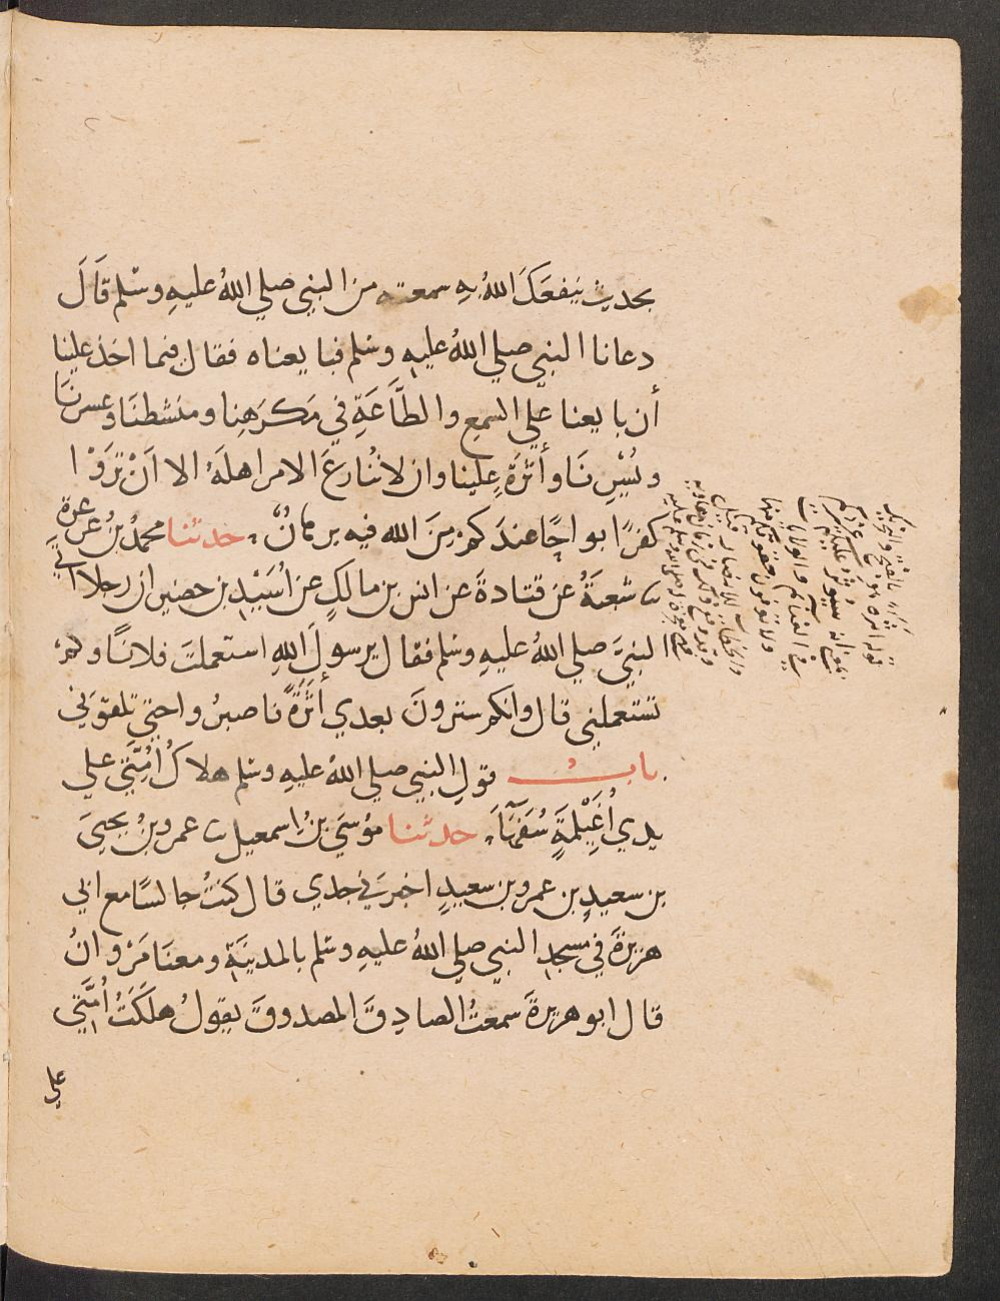 بحديث يَنفعَكَ اللهُ بِهِ سمعته مِنَ النبي صلي اللهُ عليهِ وسَلم قَالَ
دعانا النبي صلي اللهُ عليهِ وسَلم فبايعناه فقال فيما اخذ علينا
أن بايعنا علي السمعِ والطَّاعَةِ في مَكرَهِنا ومنشطنَا وعسرنَا
ويُسْرِنَا وأثَرَةٍ علينا وان لا نُنَازِعَ الامر اهلَهُ الا اَنْ تَرَوْا
كفرًا بواحًا عندَكم مِنَ الله فيه برهانٌ، حدثنا محمدُ بنُ عرعرة
ث شعبَةُ عن قتادةَ عن انس بن مالكٍ عن اُسَيْدِ بن حضير ان رجلا اتي
النبيَّ صلي اللهُ عليهِ وسَلم فقال يرسولَ اللهِ استعملتَ فلانًا ولم
تستعملني قال وانكم سترونَ بعدي أثَرَةً فاصبرُوا حتي تلقوَني
باب قولِ النبي صلي اللهُ عليهِ وسَلم هلاكُ اُمَّتي علي
يدي اُغَيْلِمَةٍ سُفَهَآءَ، حدثنا مُوسَي بنُ اسمعيل ث عمرو بنُ يحييَ
بن سعيدِ بن عمرو بن سعيدٍ اخبرَني جدي قال كنتُ جالسًا مع ابي
هريرةَ في مسجدِ النبي صلي اللهُ عليهِ وسَلم بالمدينَةِ ومعنَا مَرْوانُ
قال ابو هريرةَ سمعتُ الصادِقَ المصدوقَ يقولُ هلَكَتُ اُمَّتي
علي